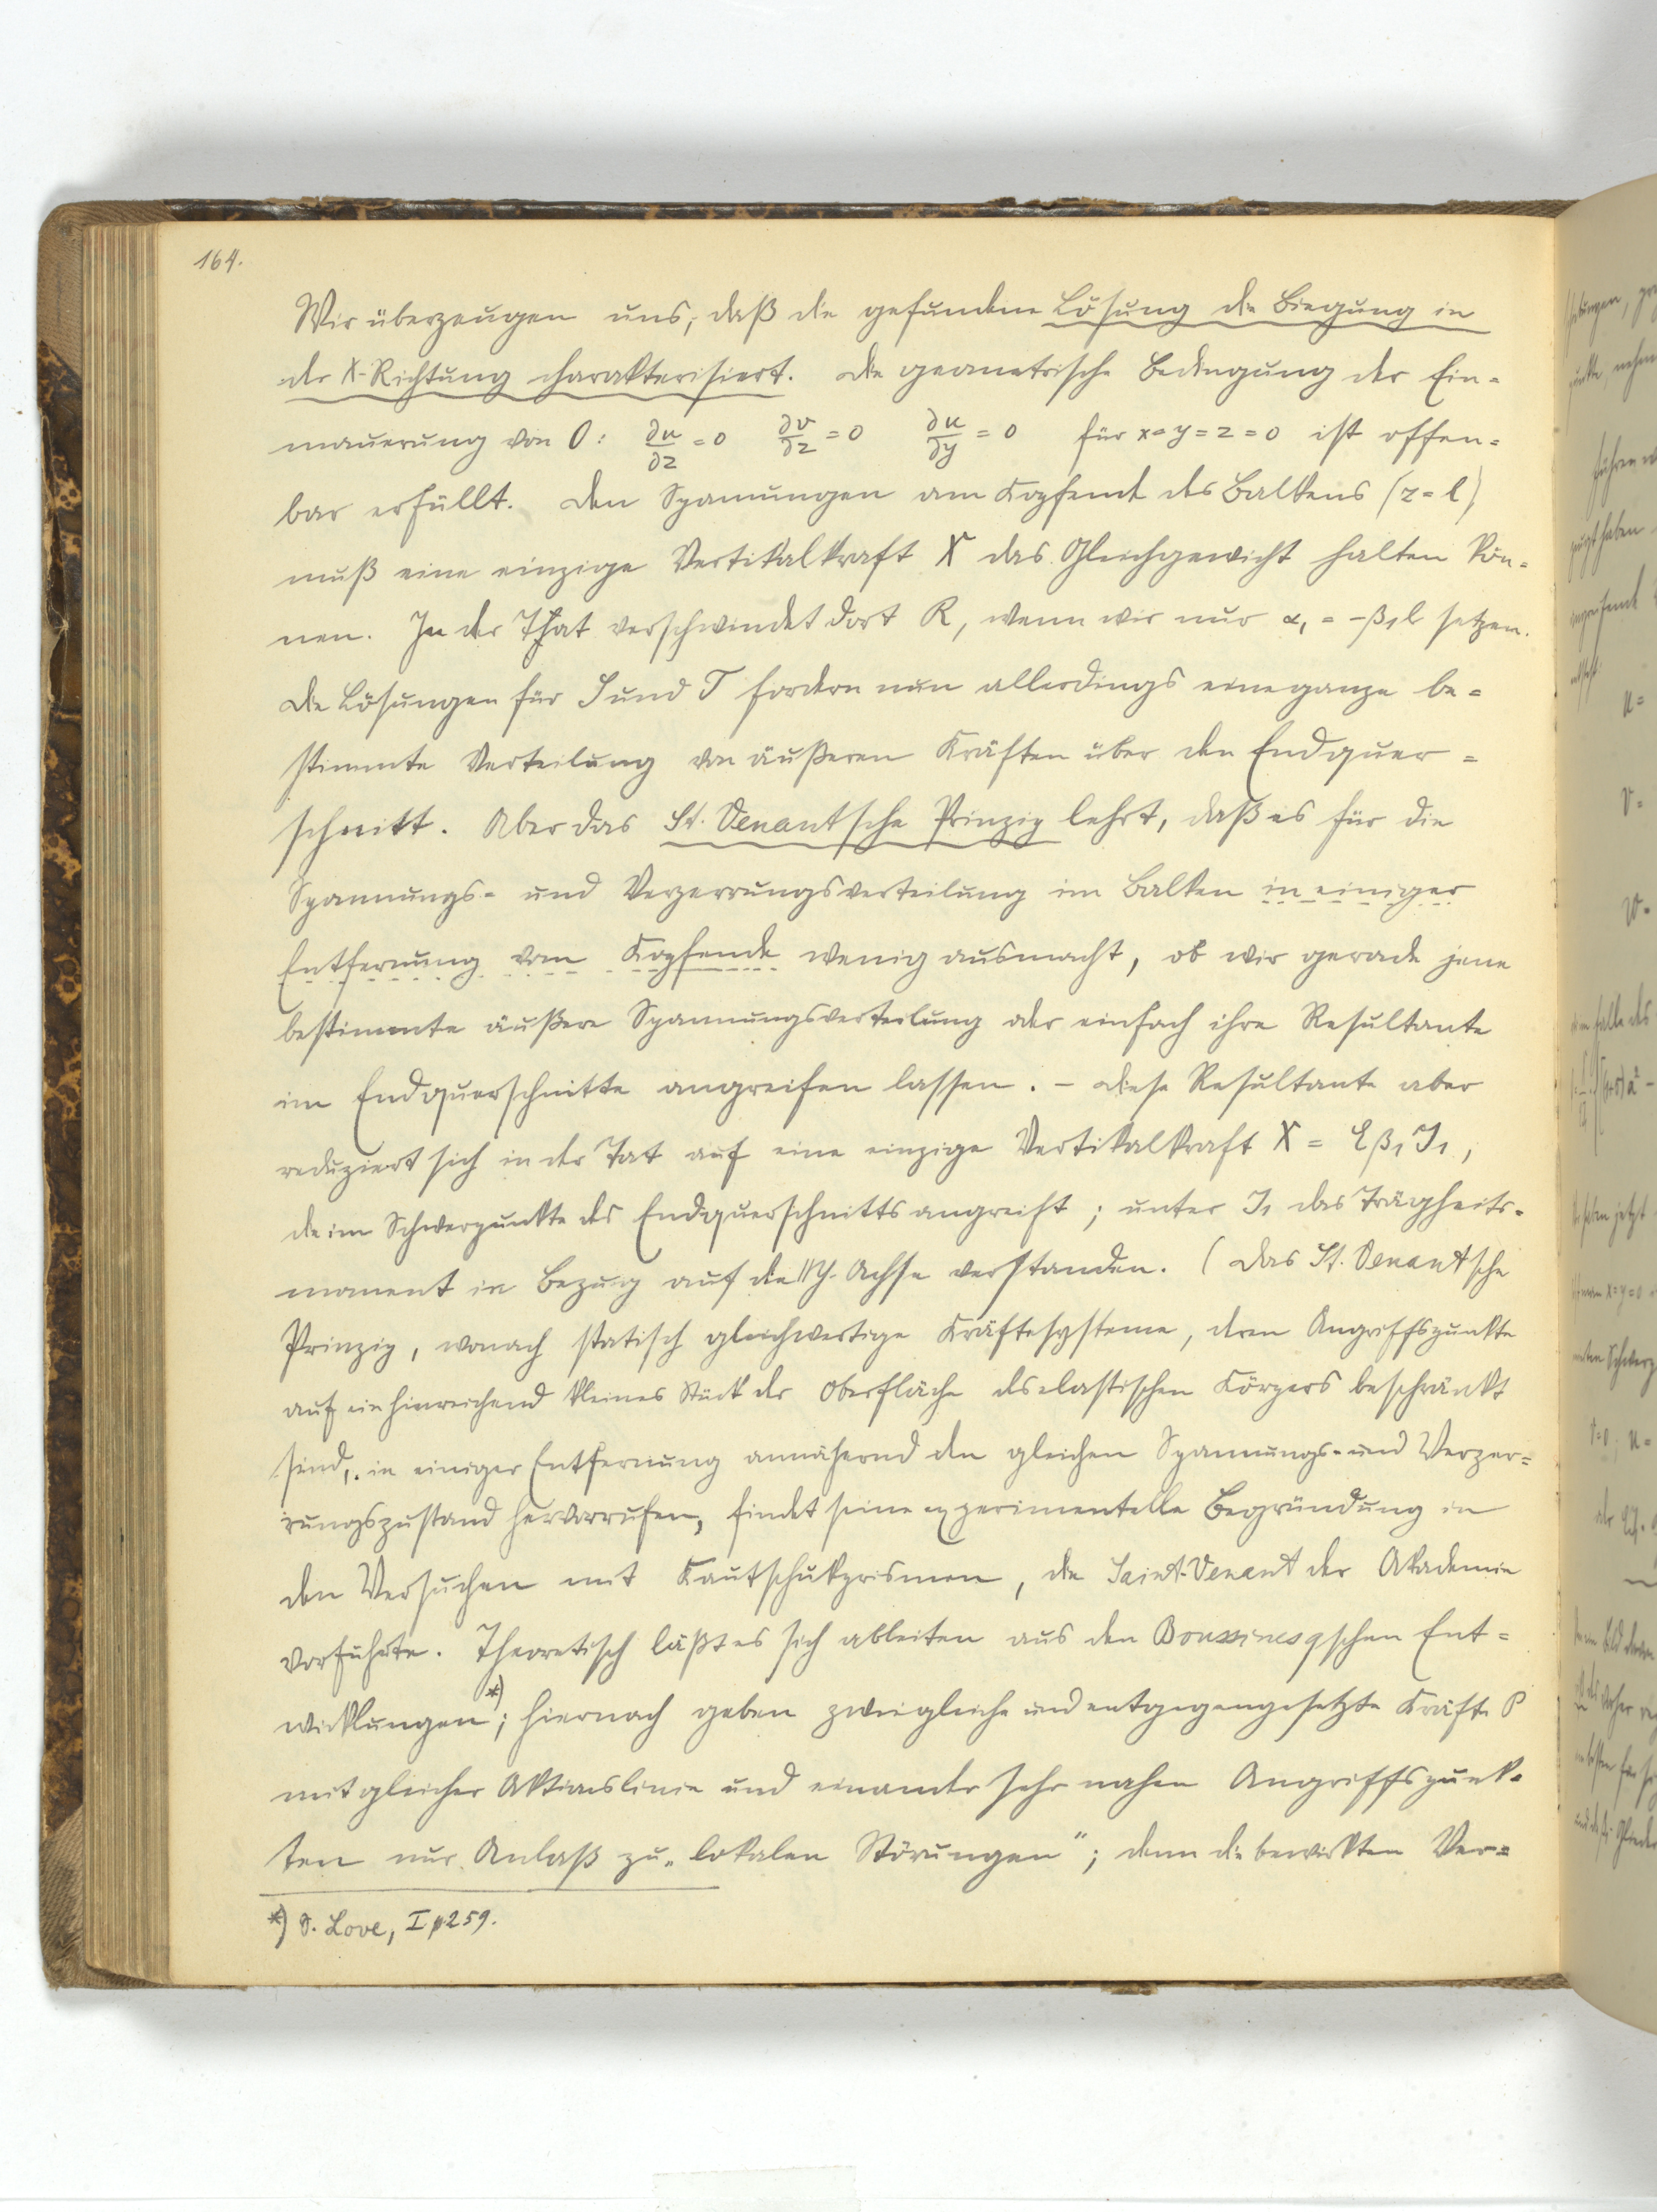 164.
Wir überzeugen uns, daß die gefundene Lösung die Biegung in
der X-Richtung charakterisiert. Die geometrische Bedingung der Ein=
mauerung von O: ∂u/∂z = 0 ∂v/∂z = 0 ∂u/∂y = 0 für x=y=z=0 ist offen=
bar erfüllt. Den Spannungen am Kopfende des Balkens (z=l)
muß eine einzige Vertikalkraft X das Gleichgewicht halten kön=
nen. In der That verschwindet dort R, wenn wir nur α₁ = -β₁l setzen.
Die Lösungen für S und T fordern nun allerdings eine ganze be=
stimmte Verteilung von äußeren Kräften über den Endquer=
schnitt. Aber das St. Venantsche Prinzip lehrt, daß es für die
Spannungs= und Verzerrungsverteilung im Balken in einiger
Entfernung vom Kopfende wenig ausmacht, ob wir gerade jene
bestimmte äußere Spannungsverteilung oder einfach ihre Resultante
im Endquerschnitte angreifen lassen. – Diese Resultante aber
reduziert sich in der Tat auf eine einzige Vertikalkraft X = Eβ₁J₁,
die im Schwerpunkte des Endquerschnitts angreift; unter J₁ das Trägheits=
moment in Bezug auf die Y-Achse verstanden. (Das St. Venantsche
Prinzip, wonach statisch gleichwertige Kräftesysteme, deren Angriffspunkte
auf ein hinreichend kleines Stück der Oberfläche des elastischen Körpers beschränkt
sind, in einiger Entfernung annähernd den gleichen Spannungs= und Verzer=
rungszustand hervorrufen, findet seine experimentelle Begründung in
den Versuchen mit Kautschukprismen, die Saint-Venant der Akademie
vorführte. Theoretisch läßt es sich ableiten aus den Boussinesqschen Ent=
wicklungen*); hiernach geben zwei gleiche und entgegengesetzte Kräfte P
mit gleicher Aktionslinie und einander sehr nahen Angriffspunk=
ten nur Anlaß zu „lokalen Störungen"; denn die bewirkten Ver=
*) S. Love, I p 259.